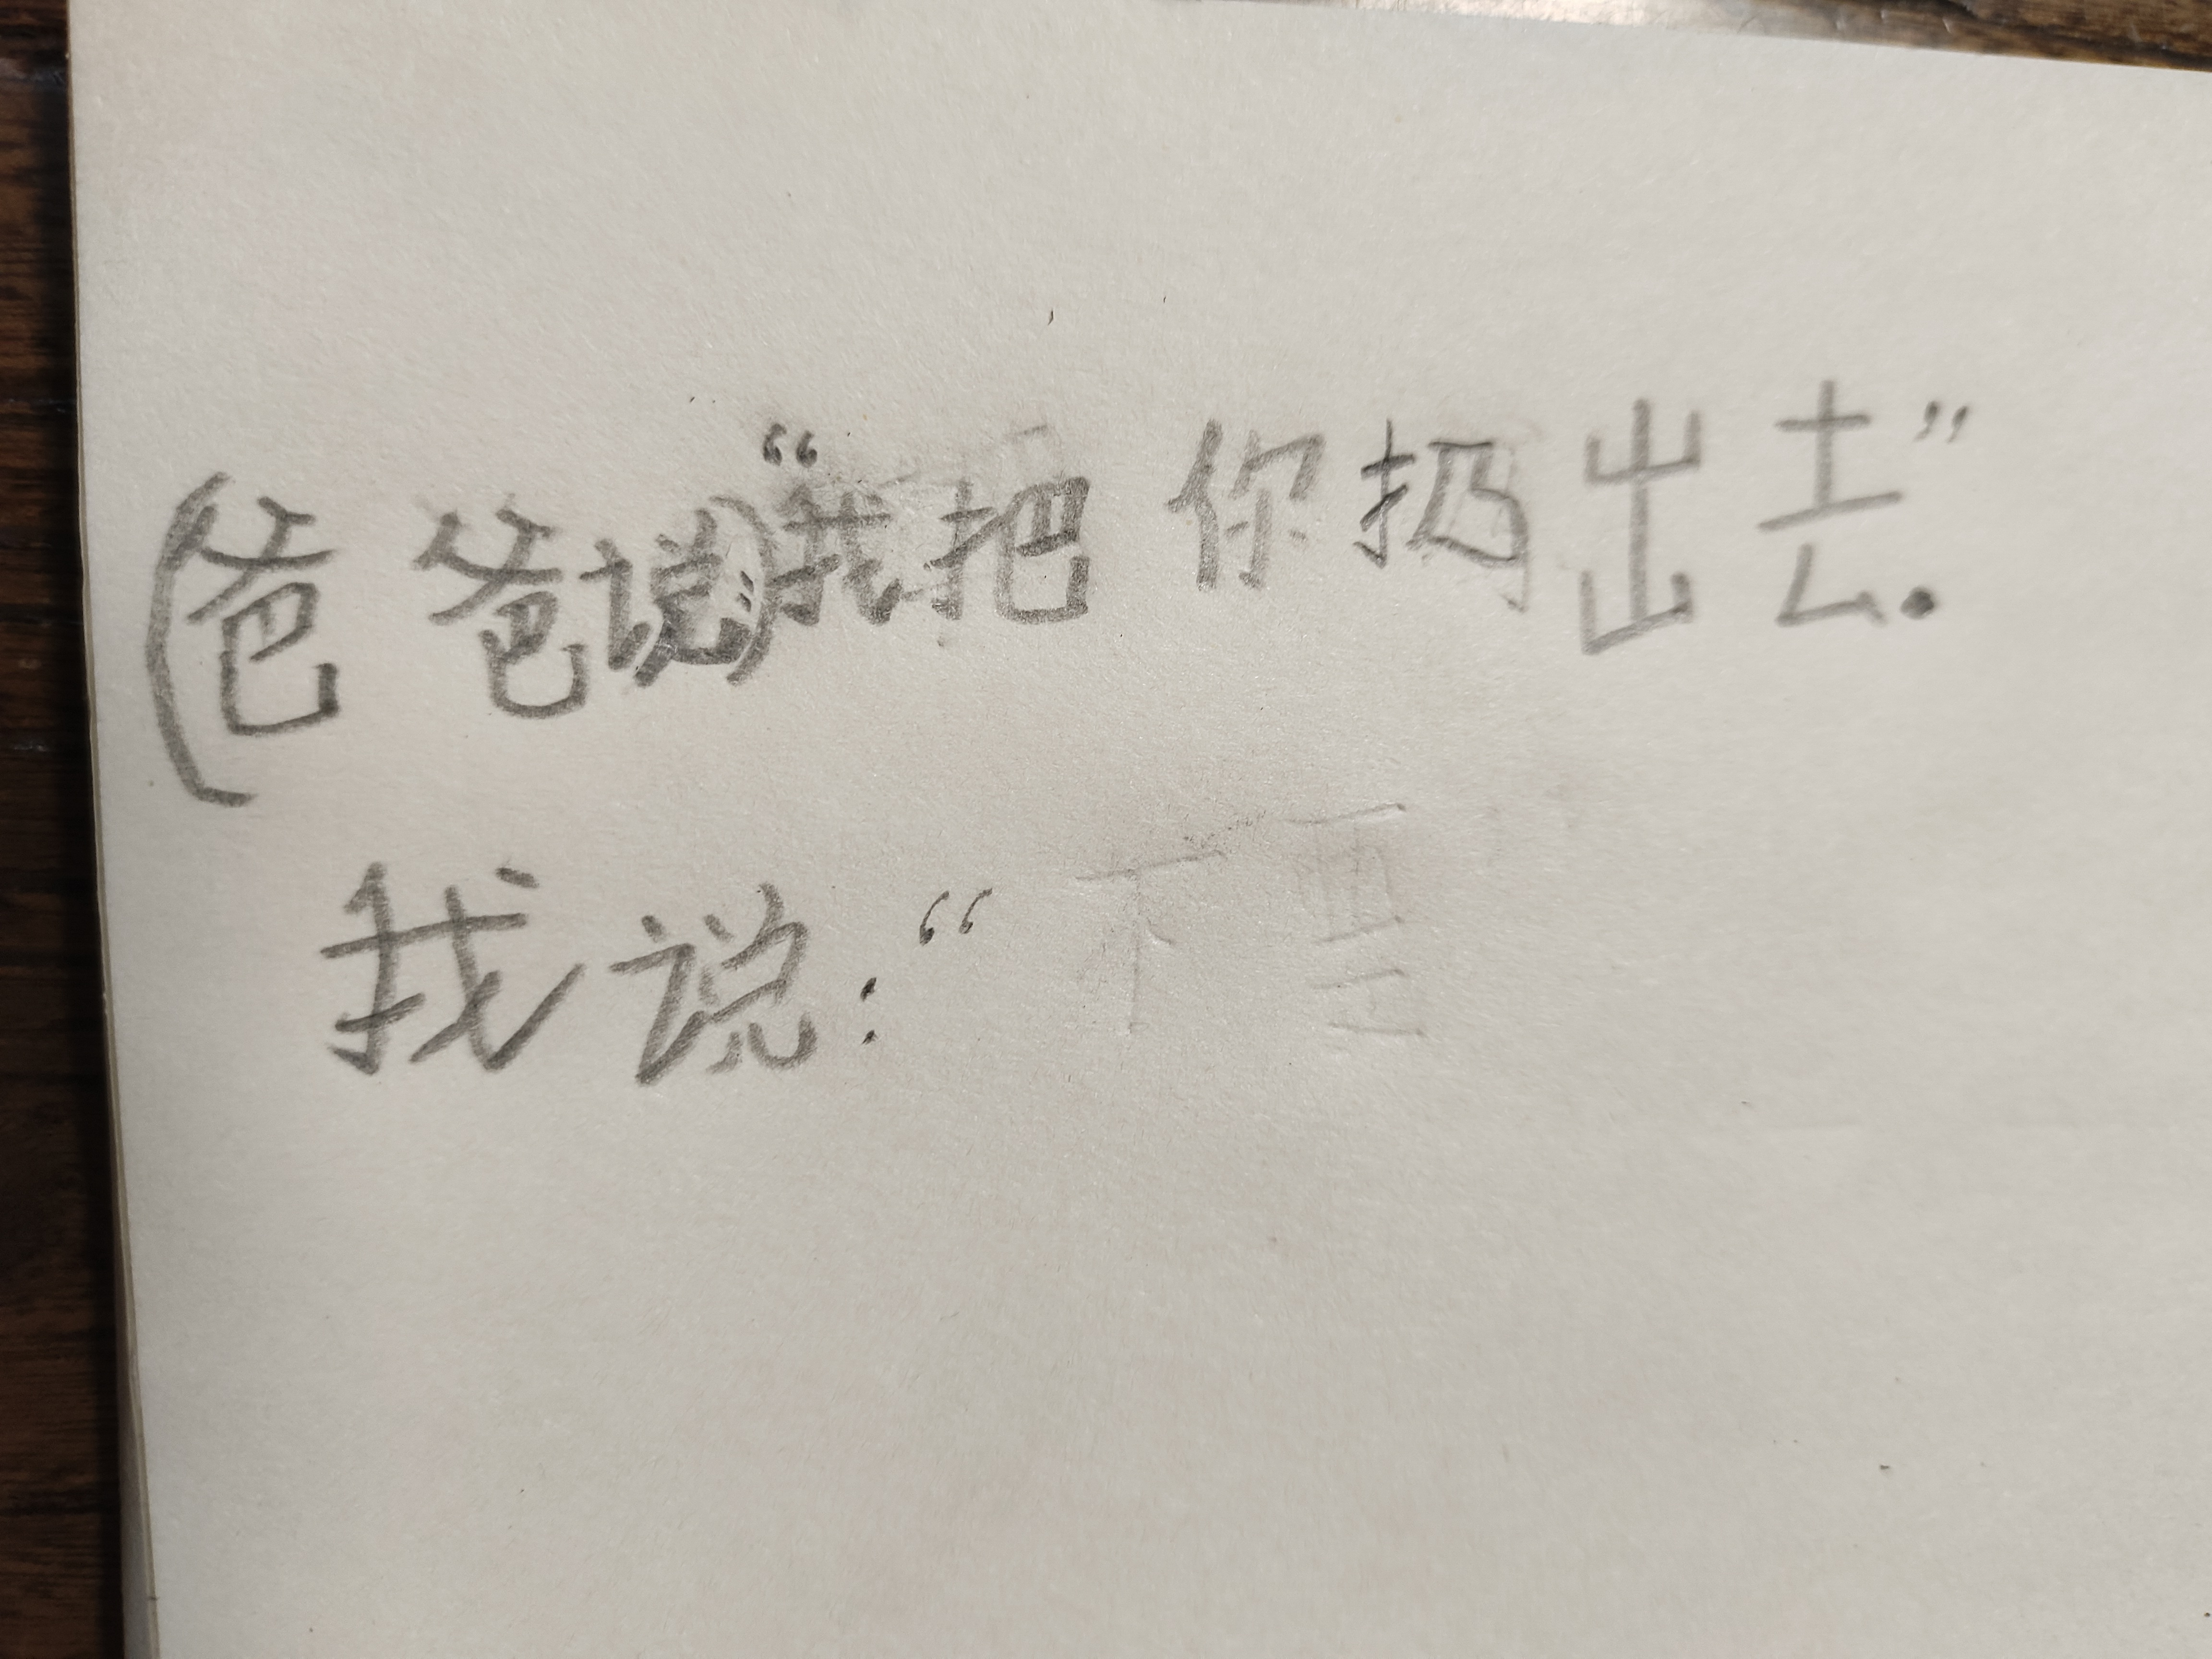 (爸爸说:)“我把你扔出去.”
我说:“不